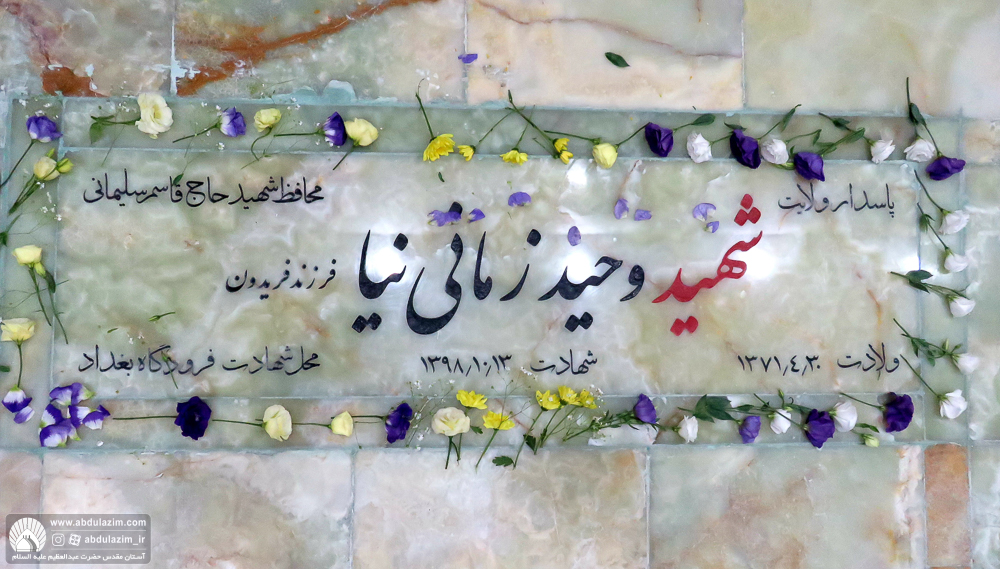 پاسدار ولایت
محافظ شهید حاج قاسم سلیمانی
شهید وحید زمانی نیا فرزند فریدون
ولادت ۱۳۷۱٫۴٫۳۰
شهادت ۱۳۹۸٫۱۰٫۱۳
محل شهادت فرودگاه بغداد
www.abdulazim.com
abdulazim_ir
آستان مقدس حضرت عبدالعظیم علیه السلام